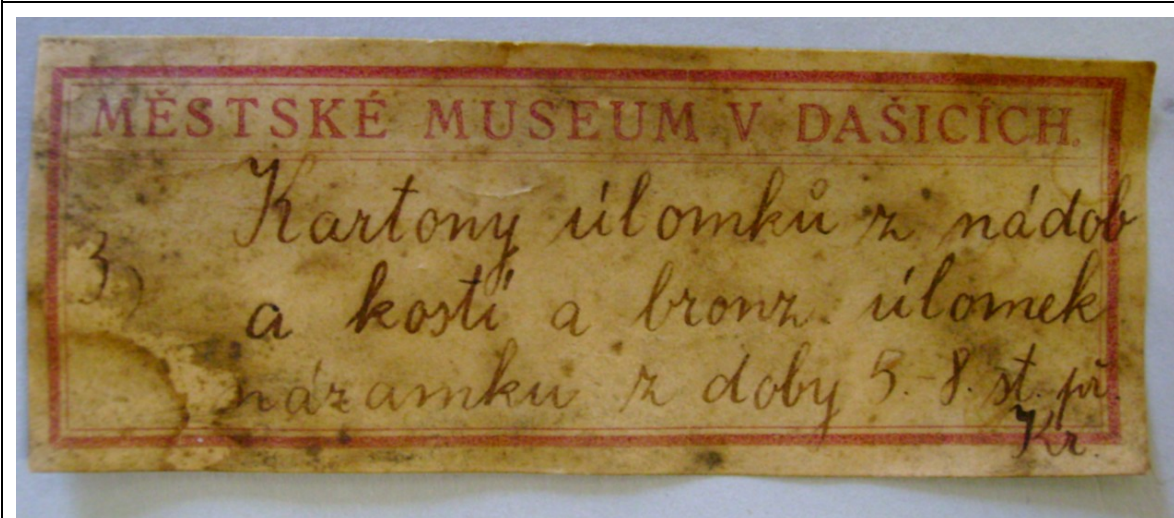 MĚSTSKÉ MUSEUM V DAŠICÍCH.
Kartony úlomků z nádob
3) a kostí a bronz. úlomek
názamku z doby 5.-8. st. př.
Kr.